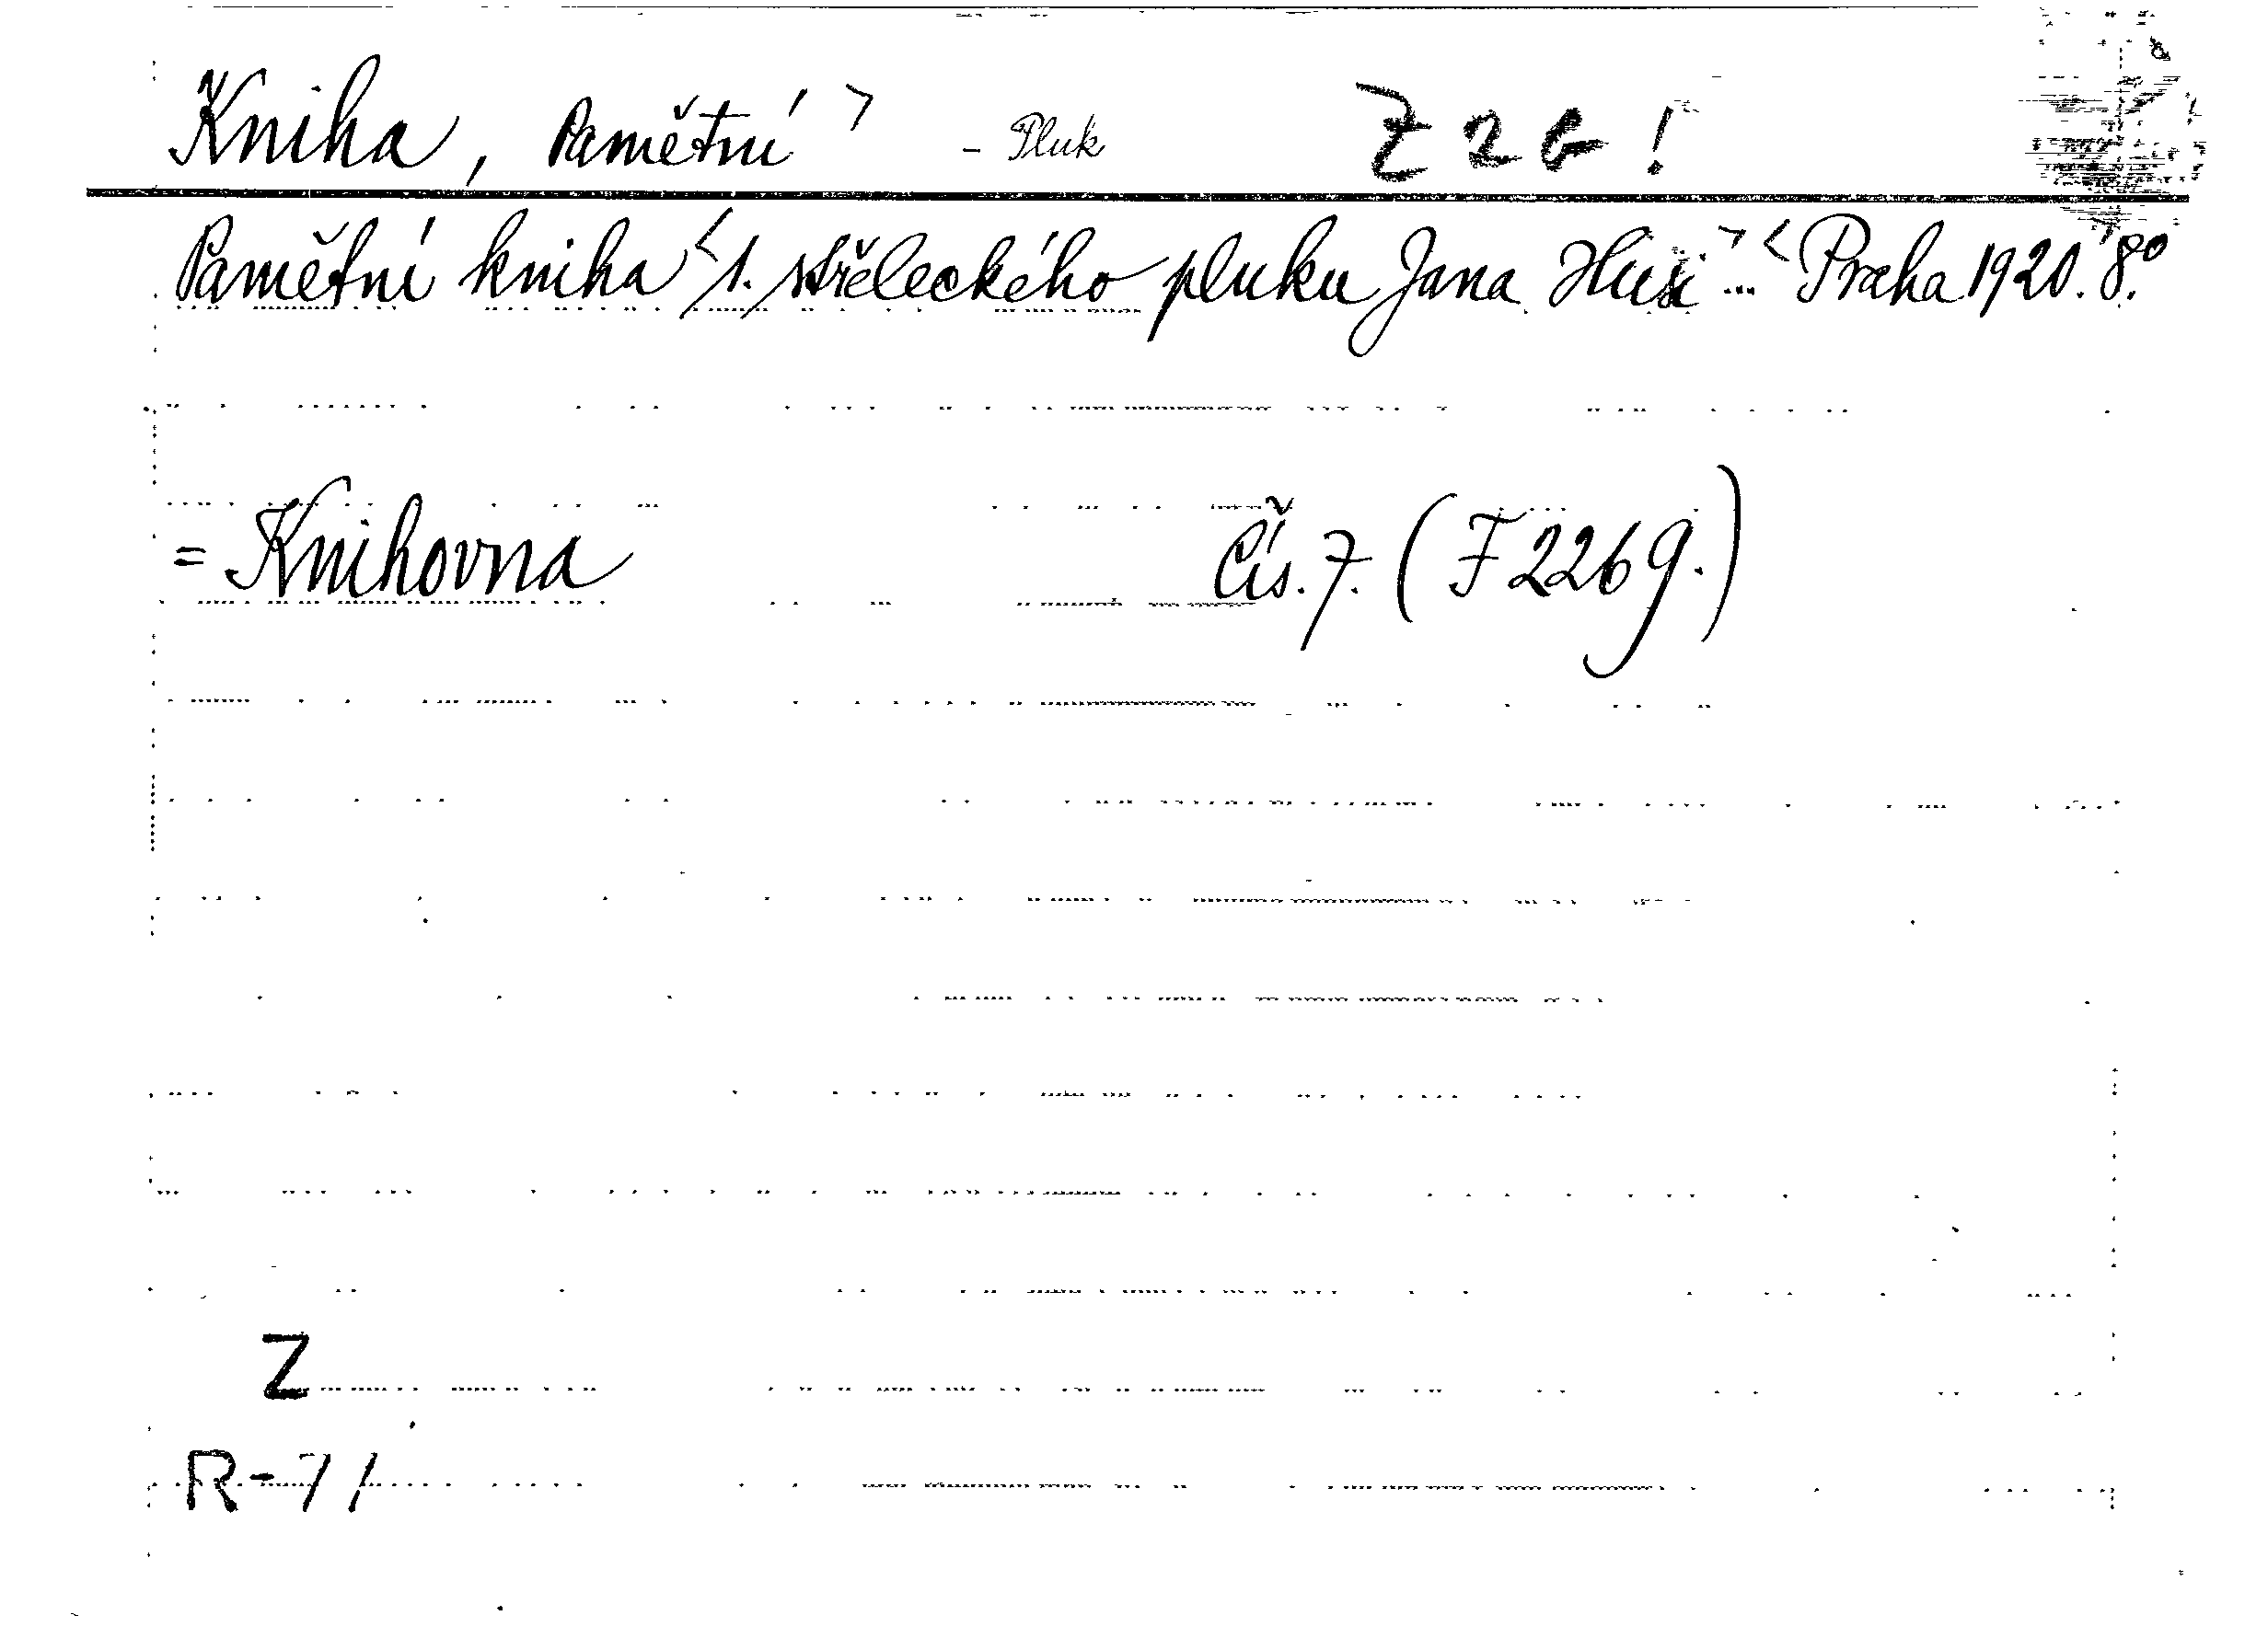 Kniha, Pamětní > - Pluk Z 2 G !
Pamětní kniha < 1. střeleckého pluku Jana Husi ... > < Praha 1920. 8.°
= Knihovna Čís. 7. (F 2269.)
Z
R-71